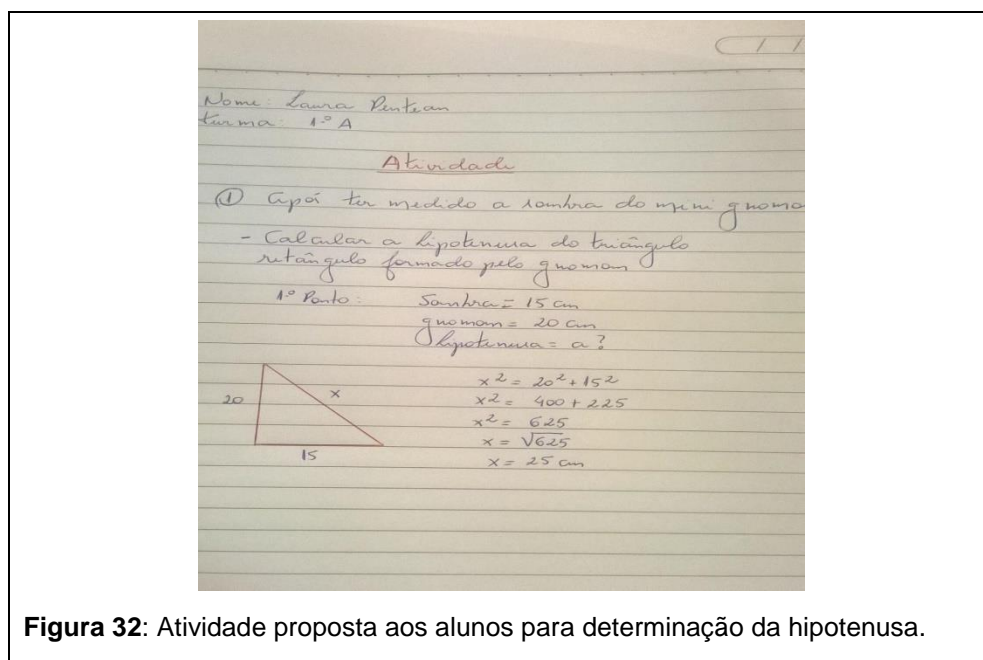 Nome: Laura Pentean
turma: 1º A
Atividade
① Após ter medido a sombra do mini gnomo
- Calcular a hipotenusa do triângulo
retângulo formado pelo gnomon
1º Ponto: Sombra = 15 cm
gnomon = 20 cm
hipotenusa = a?
x² = 20² + 15²
20 x x² = 400 + 225
x² = 625
x = √625
15 x = 25 cm
Figura 32: Atividade proposta aos alunos para determinação da hipotenusa.